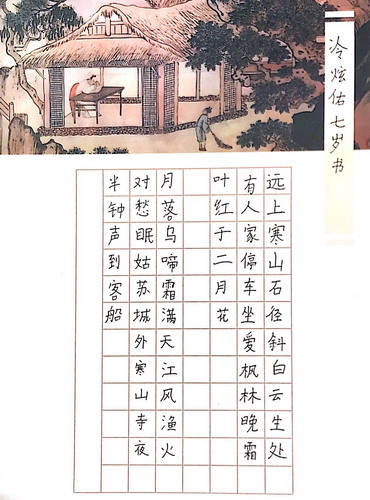 冷炫佑七岁书
远上寒山石径斜白云生处
有人家停车坐爱枫林晚霜
叶红于二月花
月落乌啼霜满天江风渔火
对愁眠姑苏城外寒山寺夜
半钟声到客船